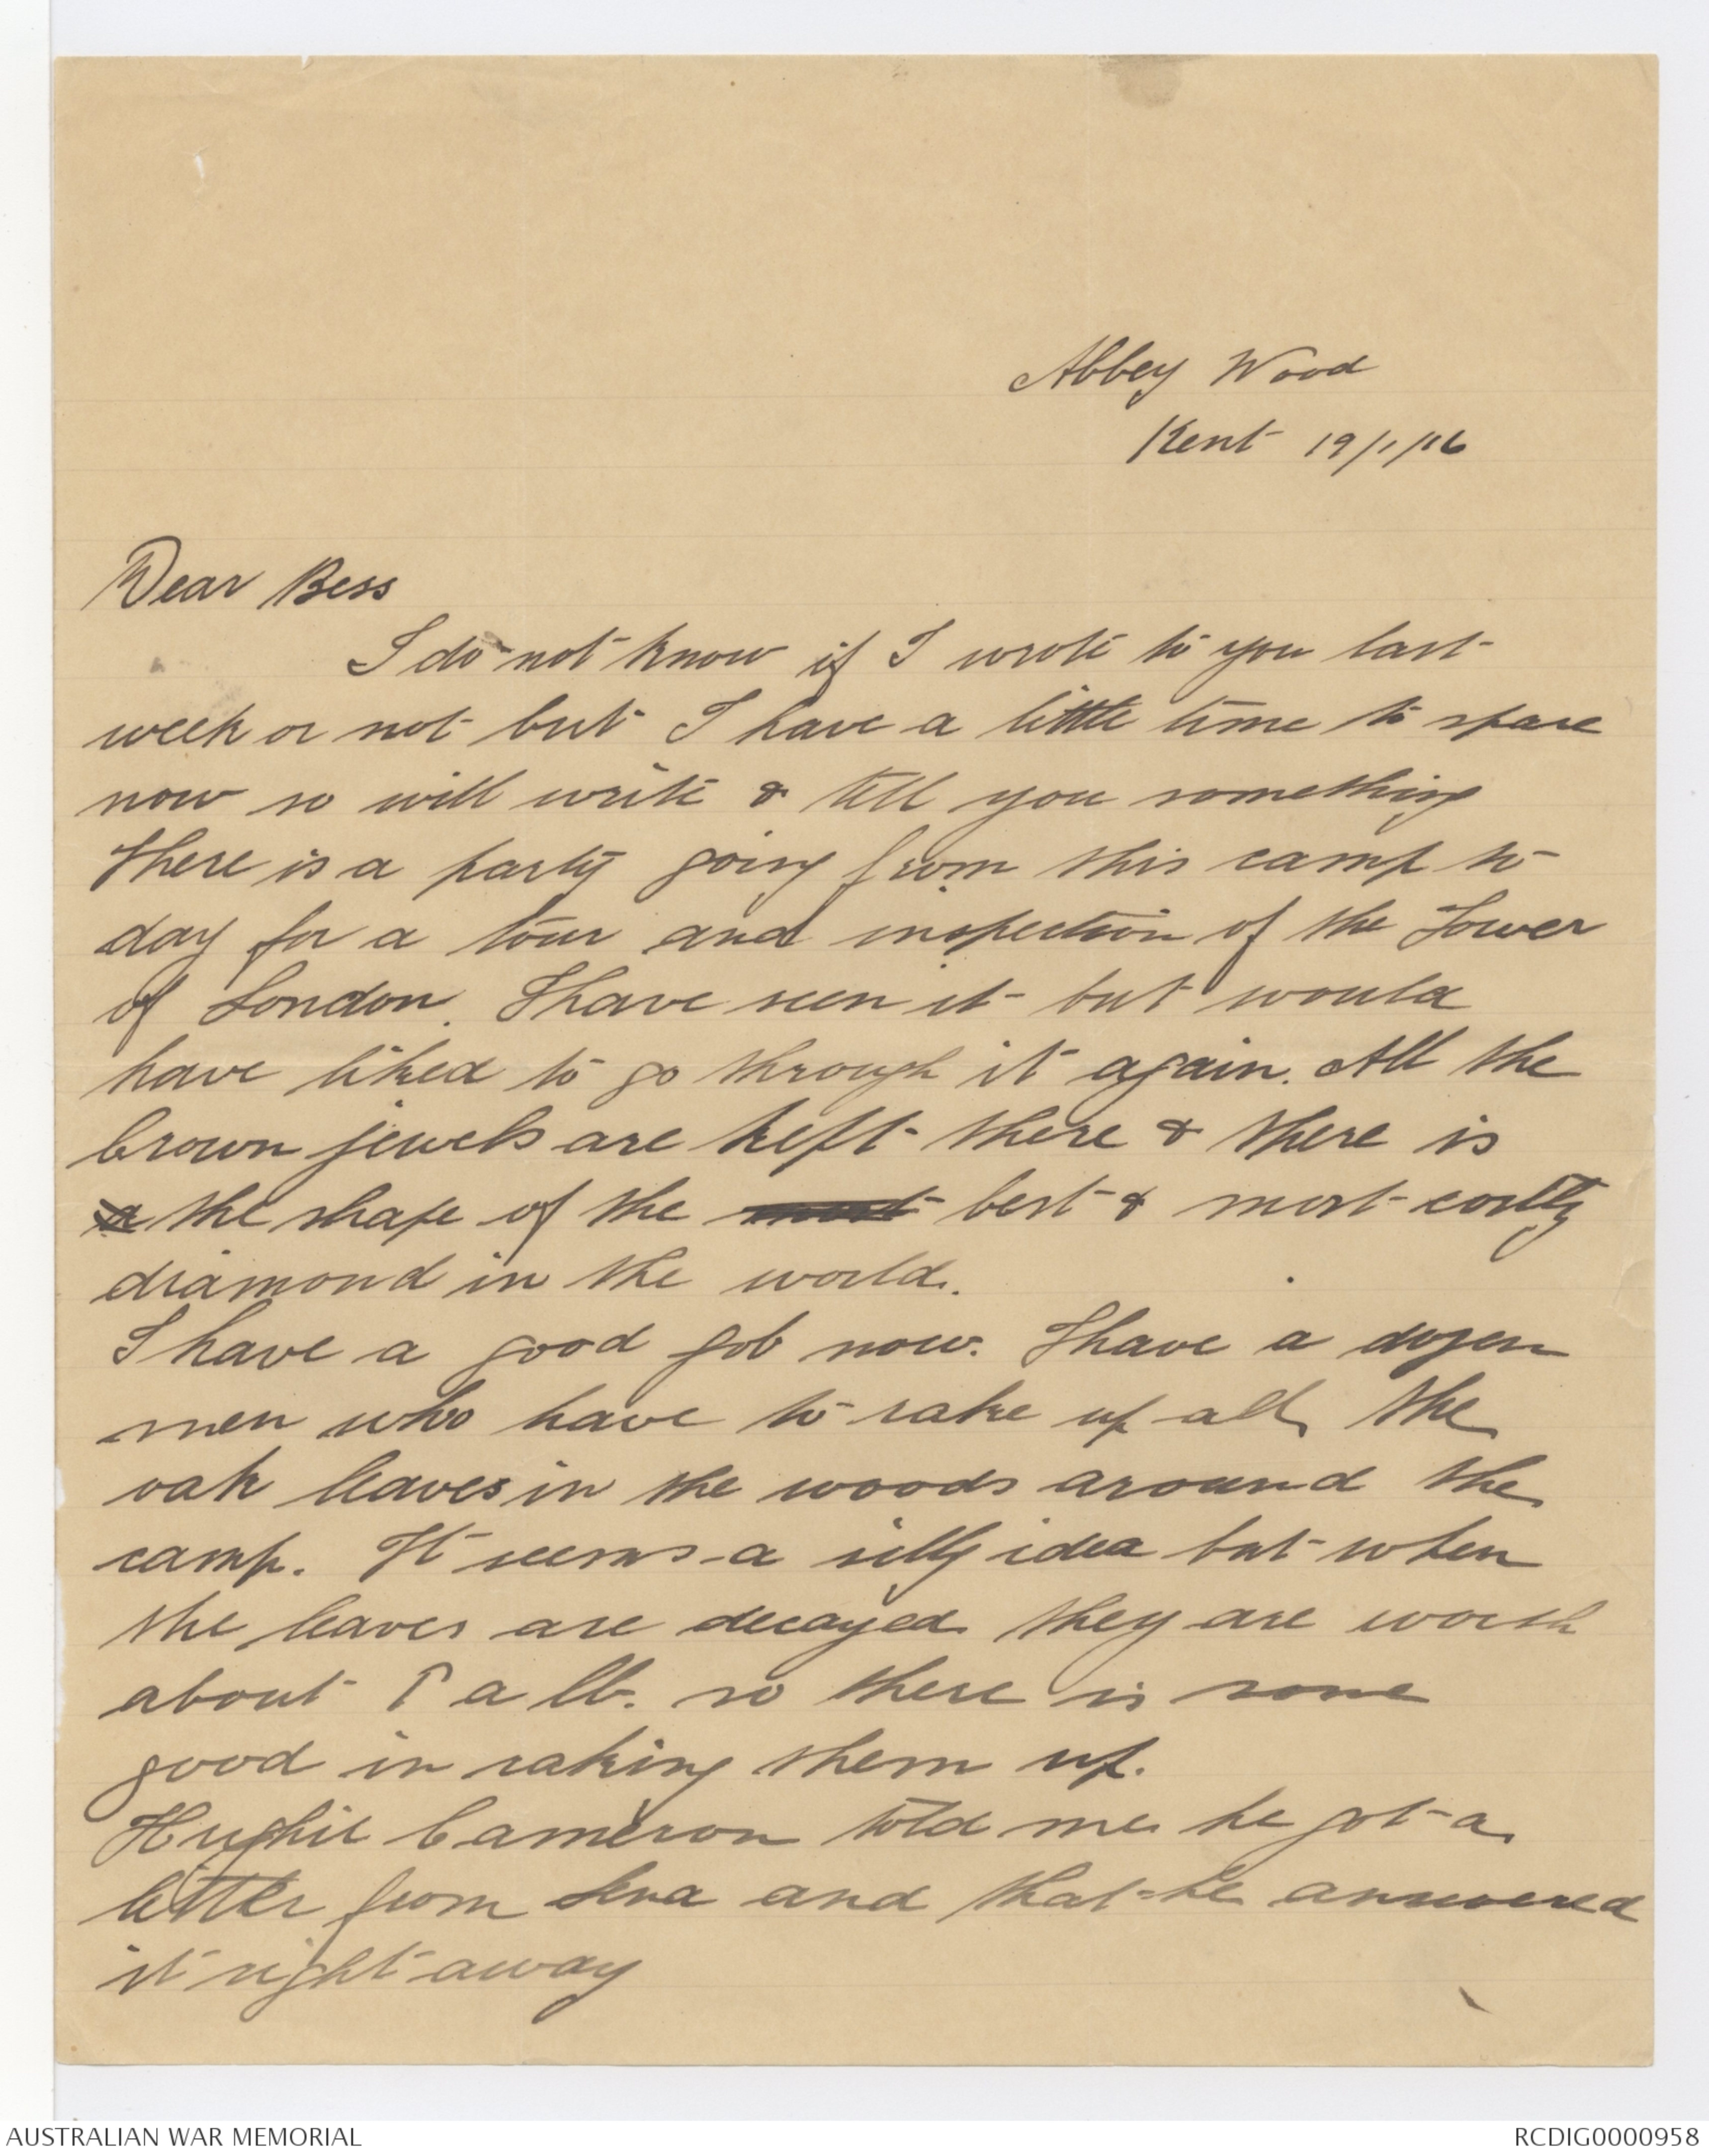 Abbey Wood
Kent 19/1/16
Dear Bess
I do not know if I wrote to you last
week or not but I have a little time to spare
now so will write & tell you something
There is a party going from this camp to
day for a tour and inspection of the Tower
of London. I have seen it but would
have liked to go through it again. All the
Crown jewels are kept there & there is
a the shape of the most best & most costly
diamond in the world.
I have a good job now. I have a dozen
men who have to rake up all the
oak leaves in the woods around the
camp. It seems a silly idea but when
the leaves are decayed they are worth
about a lb. so there is some
good in raking them up.
Hughie Cameron told me he got a
letter from and that he answered
it right away
AUSTRALIAN WAR MEMORIAL
RCDIG0000958